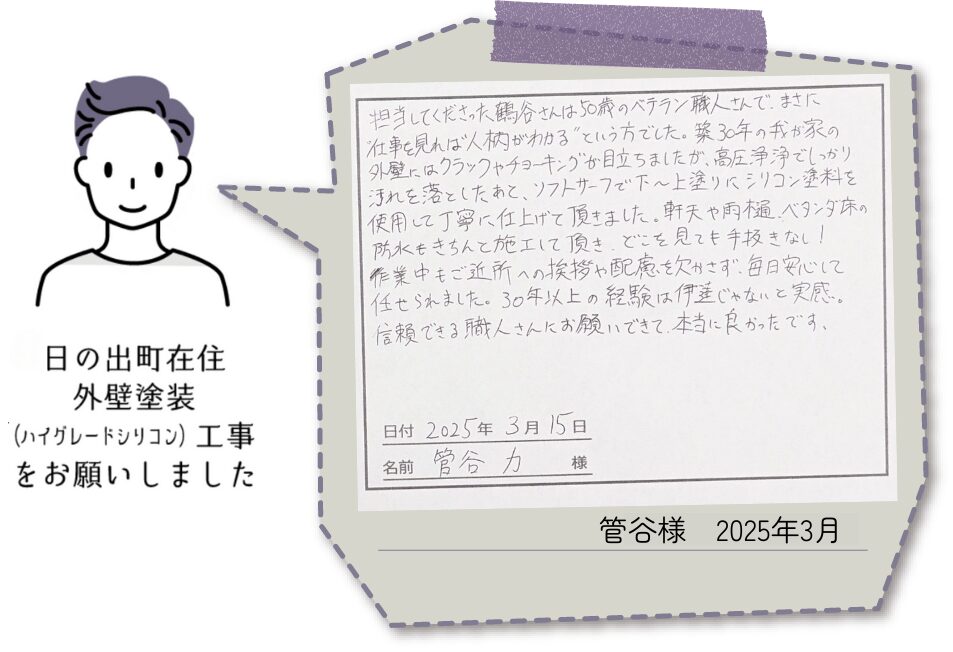 担当してくださった鶴谷さんは50歳のベテラン職人さんで、まさに
"仕事を見れば人柄がわかる"という方でした。築30年の我が家の
外壁にはクラックやチョーキングが目立ちましたが、高圧浄浄でしっかり
汚れを落としたあと、ソフトサーフで下〜上塗りにシリコン塗料を
使用して丁寧に仕上げて頂きました。軒天や雨樋、ベタンダ床の
防水もきちんと施工して頂き、どこを見ても手抜きなし!
作業中もご近所への挨拶や配慮を欠かさず、毎日安心して
任せられました。30年以上の経験は伊達じゃないと実感。
信頼できる職人さんにお願いできて、本当に良かったです。
日付 2025年 3月 15日
名前 管谷 力 様
管谷様 2025年3月
日の出町在住
外壁塗装
(ハイグレードシリコン)工事
をお願いしました